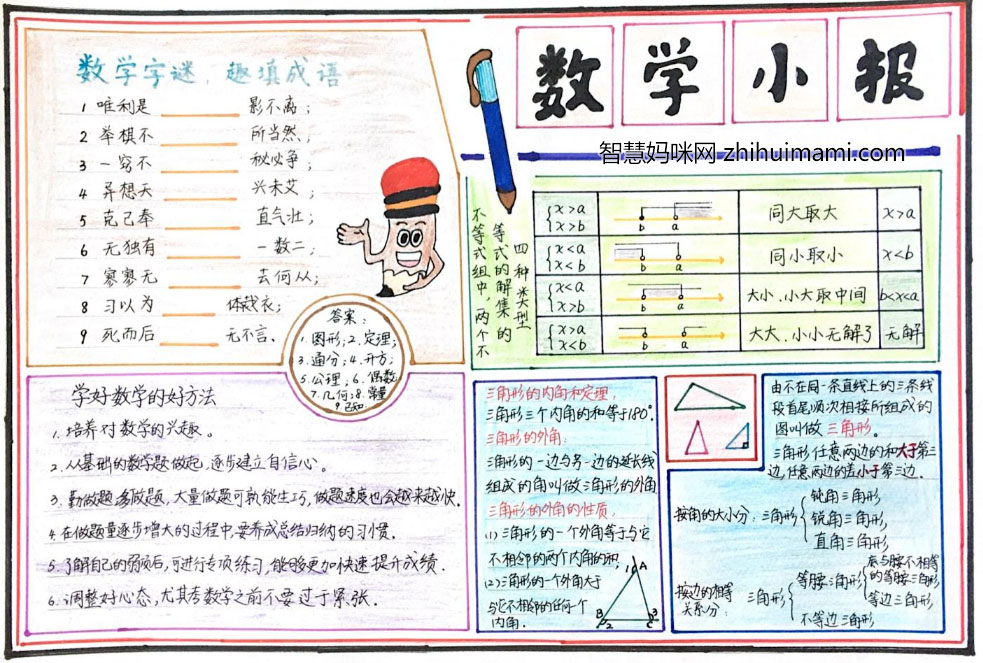 数学小报
智慧妈咪网 zhihuimami.com
数学字谜，趣填成语
1 唯利是 影不离；
2 举棋不 所当然、
3 一窍不 秘必争；
4 异想天 兴未艾；
5 克己奉 直气壮；
6 无独有 一数二；
7 寥寥无 去何从；
8 习以为 体裁衣；
9 死而后 无不言、
答案：
1. 图形；2. 定理；
3. 通分；4. 开方；
5. 公理；6. 偶数
7. 几何；8. 常量
9. 已知
不等式组中，两个不
等式的解集的
四种类型
x>a
x>b
b a
同大取大
x>a
x<a
x<b
b a
同小取小
x<b
x<a
x>b
b a
大小、小大取中间
b<x<a
x>a
x<b
b a
大大、小小无解了
无解
学好数学的好方法
1. 培养对数学的兴趣。
2. 从基础的数学题做起，逐步建立自信心。
3. 勤做题多做题，大量做题可孰能生巧，做题速度也会越来越快.
4. 在做题量逐步增大的过程中，要养成总结归纳的习惯.
5. 了解自己的弱项后，可进行专项练习，能够更加快速提升成绩.
6. 调整好心态，尤其考数学之前不要过于紧张.
三角形的内角和定理，
三角形三个内角的和等于180°
三角形的外角：
三角形的一边与另一边的延长线
组成的角叫做三角形的外角
三角形的外角的性质.
(1)三角形的一个外角等于与它
不相邻的两个内角的和，
(2)三角形的一个外角大于
与它不相邻的任何一个
内角.
1 A
B 2 3 C
由不在同一条直线上的三条线
段首尾顺次相接所组成的
图叫做 三角形。
三角形任意两边的和大于第三
边，任意两边的差小于第三边.
按角的大小分：三角形
钝角三角形
锐角三角形，
直角三角形，
按边的相等
关系分：
三角形
等腰三角形
底与腰不相等
的等腰三角形
等边三角形
不等边三角形